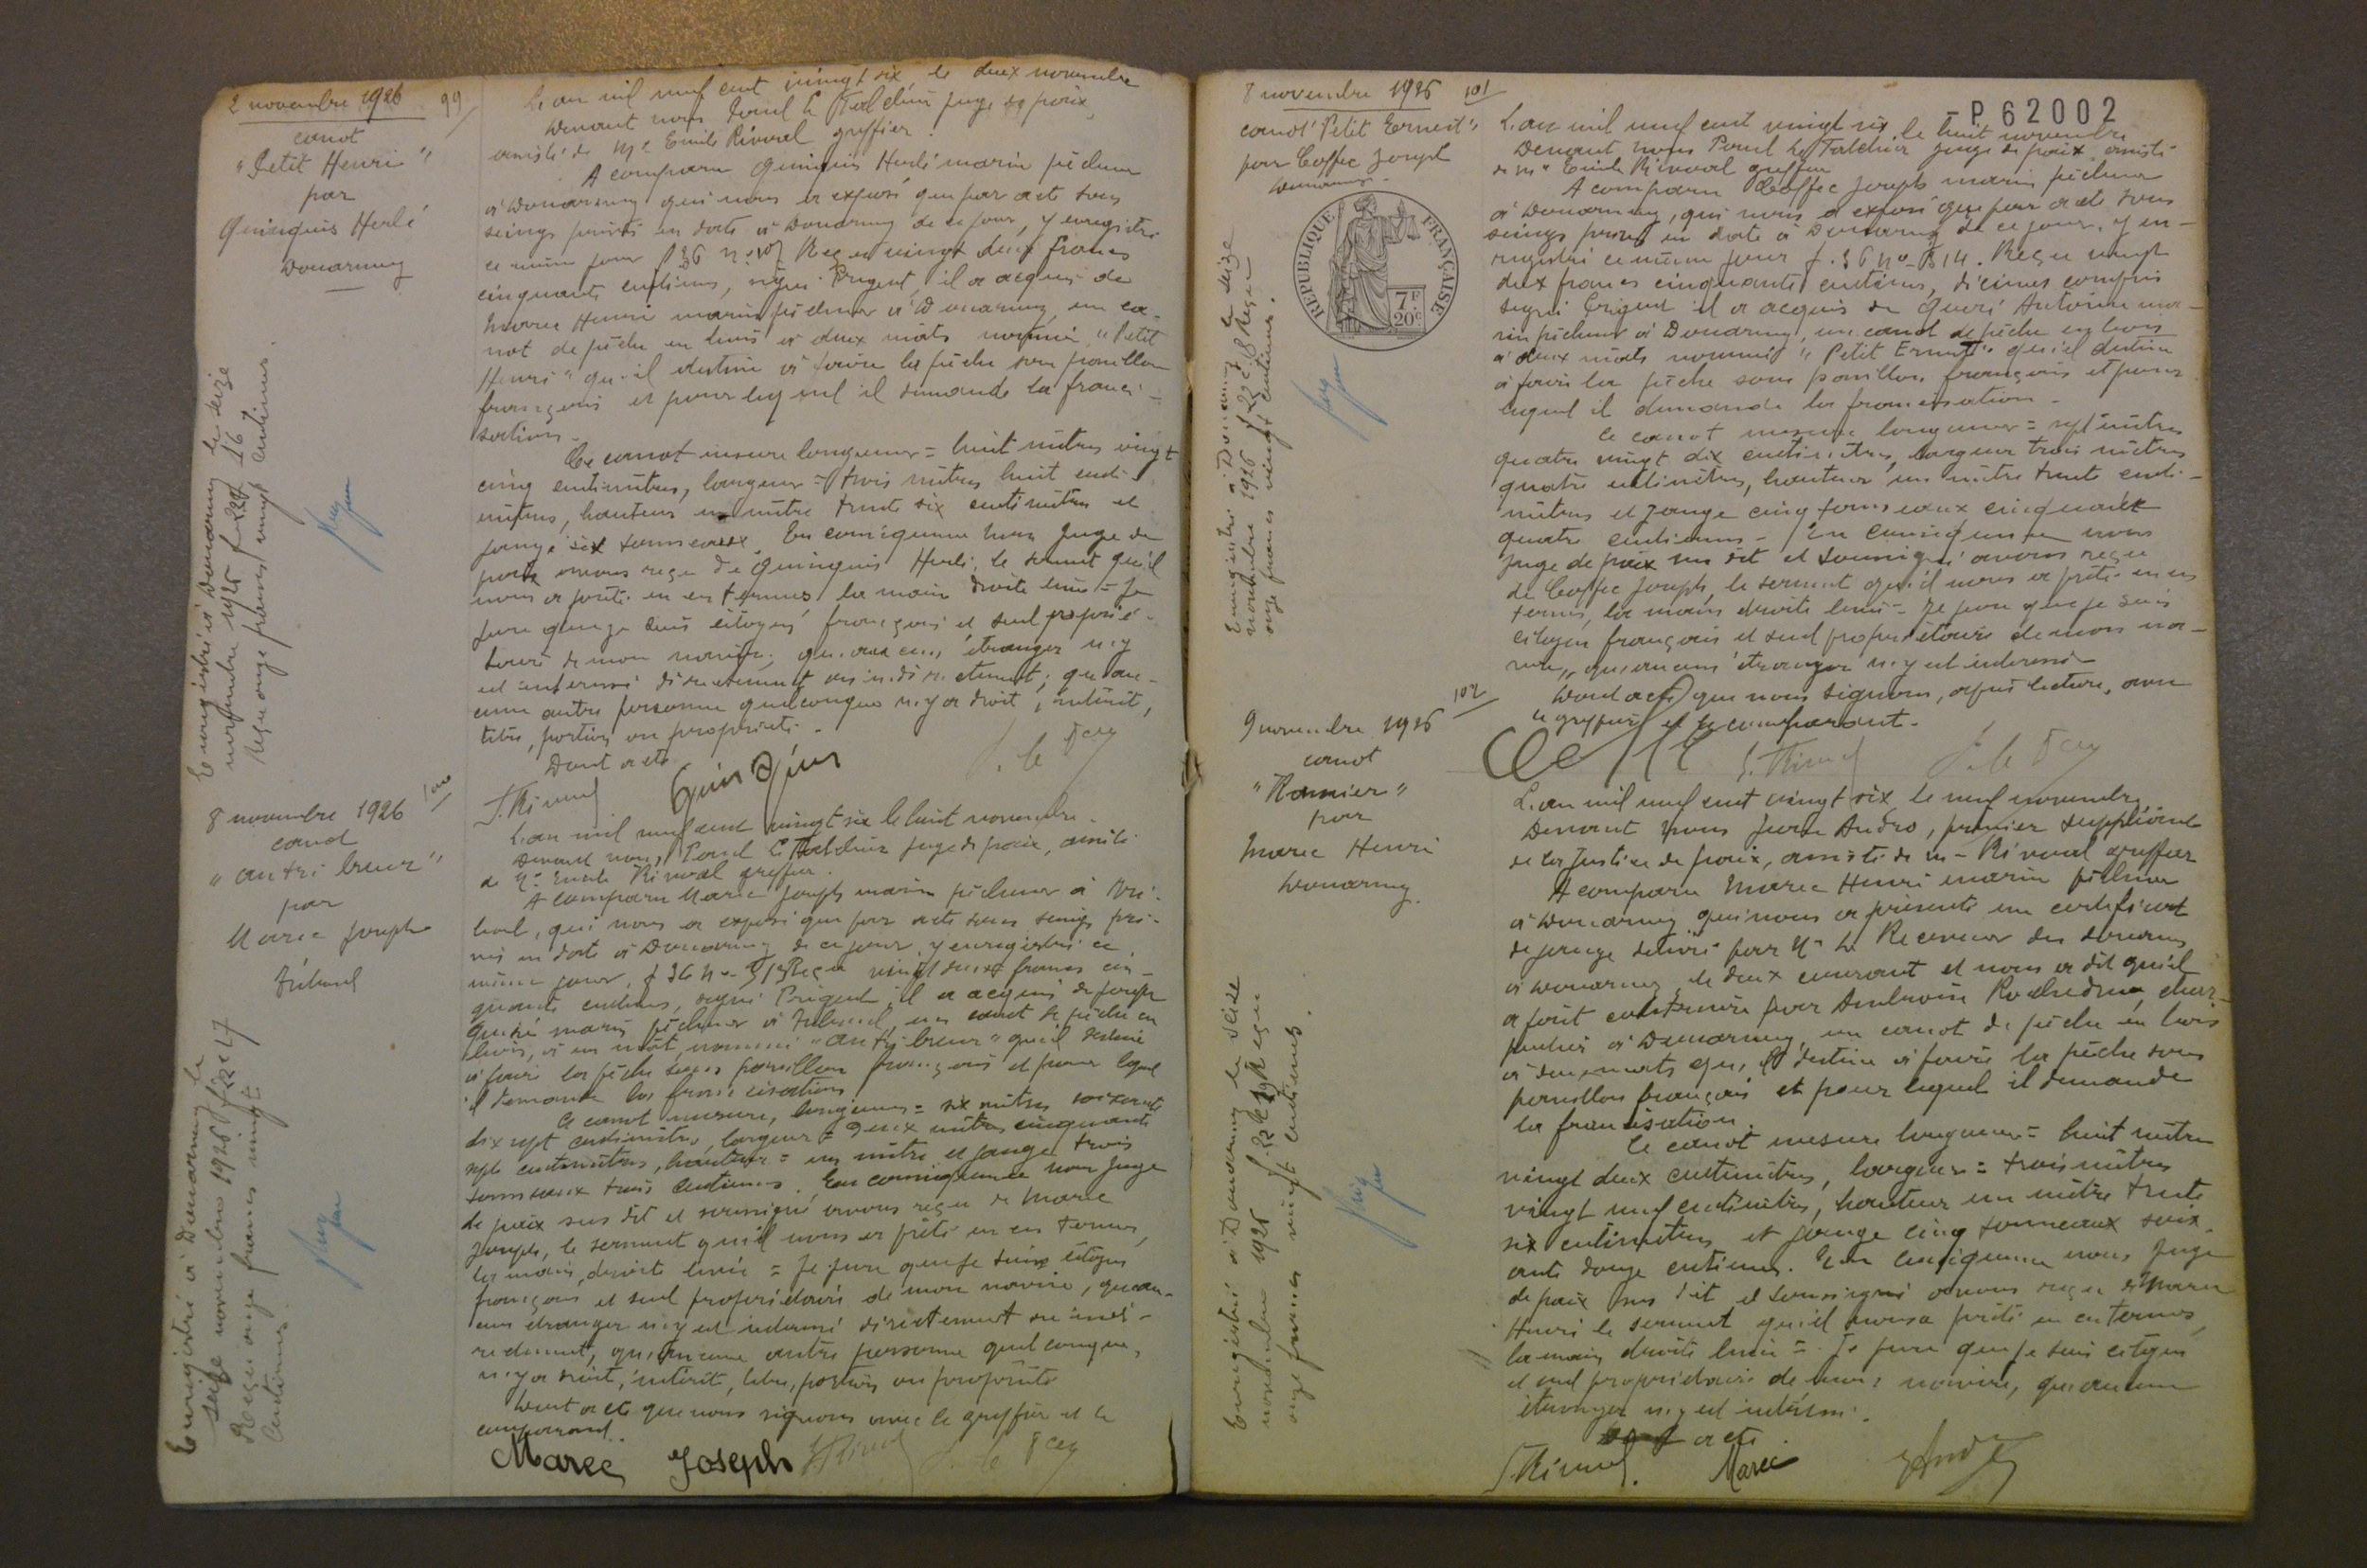 2 novembre 1926 99
canot
"Petit Henri"
par
Quinquis Herlé
Douarnenez
L'an mil neuf cent vingt six, le deux novembre
Devant nous Paul Le Juge de paix,
assisté de Me Emile Rivoal greffier.
A comparu Quinquis Herlé marin pêcheur
à Douarnenez qui nous a exposé que par acte sous
seings privés en date à Douarnenez de ce jour, y enregistré
ce même jour f 36 n° Reçu vingt deux francs
cinquante centimes, signé Prigent, il a acquis de
Marec Henri marin pêcheur à Douarnenez, un ca-
not de pêche en bois à deux mâts nommé "Petit
Henri" qu'il destine à faire la pêche sous pavillon
français et pour lequel il demande la franci-
sation.
Ce canot mesure longueur = huit mètres vingt
cinq centimètres, largeur = trois mètres huit centi-
mètres, hauteur un mètre trente six centimètres et
jauge six tonneaux. En conséquence nous Juge de
paix avons reçu de Quinquis Herlé, le serment qu'il
nous a prêté en ces termes la main droite levée = Je
jure que je suis citoyen français et seul proprié-
taire de mon navire, qu'aucun étranger n'y
est intéressé directement ou indirectement; qu'au-
cune autre personne quelconque n'y a droit, intérêt,
titre, portion ou propriété.
Dont acte
Enregistré à Douarnenez le seize
novembre 1926 f 22 C 16
Reçu onze francs vingt centimes.
8 novembre 1926 100
canot
par
Marec Joseph
Tréboul
L'an mil neuf cent vingt six le huit novembre.
Devant nous Paul Le Juge de paix, assisté
de Me Emile Rivoal greffier.
A comparu Marec Joseph marin pêcheur à Tré-
boul, qui nous a exposé que par acte sous seings pri-
vés en date à Douarnenez de ce jour, y enregistré ce
même jour, f 36 n° Reçu vingt deux francs cin-
quante centimes, signé Prigent, il a acquis de Joseph
Quéré marin pêcheur à Tréboul, un canot de pêche en
bois, à un mât, nommé qu'il destine
à faire la pêche sous pavillon français et pour lequel
il demande la francisation
Ce canot mesure, longueur = six mètres soixante
dix sept centimètres, largeur = deux mètres cinquante
sept centimètres, hauteur = un mètre et jauge trois
tonneaux trois centièmes. En conséquence nous Juge
de paix sus dit et soussigné avons reçu de Marec
Joseph, le serment qu'il nous a prêté en ces termes,
la main droite levée = Je jure que je suis citoyen
français et seul propriétaire de mon navire, qu'au-
cun étranger n'y est intéressé directement ou indi-
rectement, qu'aucune autre personne quelconque,
n'y a droit, intérêt, titre, portion ou propriété
Dont acte que nous signons avec le greffier et le
comparant.
Marec Joseph
Enregistré à Douarnenez le
seize novembre 1926 f 22 C 17
Reçu onze francs vingt
centimes.
8 novembre 1926 101
canot "Petit Ernest"
par Coffec Joseph
Douarnenez.
P 62002
RÉPUBLIQUE FRANÇAISE
7F
20c
L'an mil neuf cent vingt six, le huit novembre
Devant nous Paul Le Juge de paix assisté
de Me Emile Rivoal greffier
A comparu Coffec Joseph marin pêcheur
à Douarnenez, qui nous a exposé que par acte sous
seings privés en date à Douarnenez de ce jour, y en-
registré ce même jour f. 36 n° 514. Reçu vingt
deux francs cinquante centimes, décimes compris
signé Prigent il a acquis de Quéré Antoine ma-
rin pêcheur à Douarnenez, un canot de pêche en bois
à deux mâts nommé "Petit Ernest" qu'il destine
à faire la pêche sous pavillon français et pour
lequel il demande la francisation.
Ce canot mesure longueur = sept mètres
quatre vingt dix centimètres, largeur trois mètres
quatre centimètres, hauteur un mètre trente centi-
mètres et jauge cinq tonneaux cinquante
quatre centièmes - En conséquence nous
Juge de paix sus dit et soussigné avons reçu
de Coffec Joseph, le serment qu'il nous a prêté en ces
termes, la main droite levée = Je jure que je suis
citoyen français et seul propriétaire de mon na-
vire, qu'aucun étranger n'y est intéressé
Dont acte que nous signons, après lecture, avec
le greffier et le comparant.
Enregistré à Douarnenez le seize
novembre 1926 f 22 C 18 Reçu
onze francs vingt centimes.
9 novembre 1926 102
canot
"Ramier"
par
Marec Henri
Douarnenez.
L'an mil neuf cent vingt six le neuf novembre,
Devant nous Andro, premier suppléant
de la Justice de paix, assisté de Me Rivoal greffier
A comparu Marec Henri marin pêcheur
à Douarnenez qui nous a présenté un certificat
de jauge délivré par Mr le Receveur des douanes
à Douarnenez, le deux courant et nous a dit qu'il
a fait construire par Ambroise char-
pentier à Douarnenez, un canot de pêche en bois
à deux mâts qu'il destine à faire la pêche sous
pavillon français et pour lequel il demande
la francisation.
Ce canot mesure longueur = huit mètres
vingt deux centimètres, largeur = trois mètres
vingt neuf centimètres, hauteur un mètre trente
six centimètres et jauge cinq tonneaux soix-
ante douze centièmes. En conséquence nous Juge
de paix sus dit et soussigné avons reçu de Marec
Henri le serment qu'il nous a prêté en ces termes,
la main droite levée = Je jure que je suis citoyen
et seul propriétaire de mon navire, qu'aucun
étranger n'y est intéressé.
Dont acte
Marec
Enregistré à Douarnenez le seize
novembre 1926 f 22 C 19 Reçu
onze francs vingt centimes.